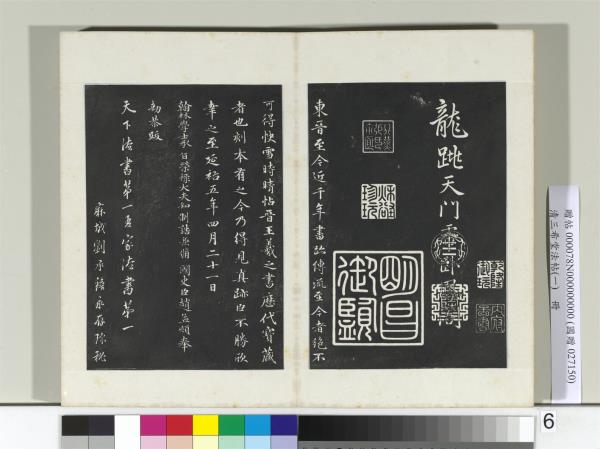 龍跳天門
明昌御覽
東晉至今近千年書跡傳流至今者絕不
可得快雪時晴帖晉王羲之書歷代寶藏
者也刻本有之今乃得見真跡臣不勝欣
幸之至延祐五年四月二十一日
翰林學士承旨榮祿大夫知制誥兼脩國史臣趙孟頫奉
勅恭跋
天下法書第一吾家法書第一
麻城劉承禧永存珍祕
贈帖 000078N000000000 國贈 (027150)
清三希堂法帖(一) 冊
6